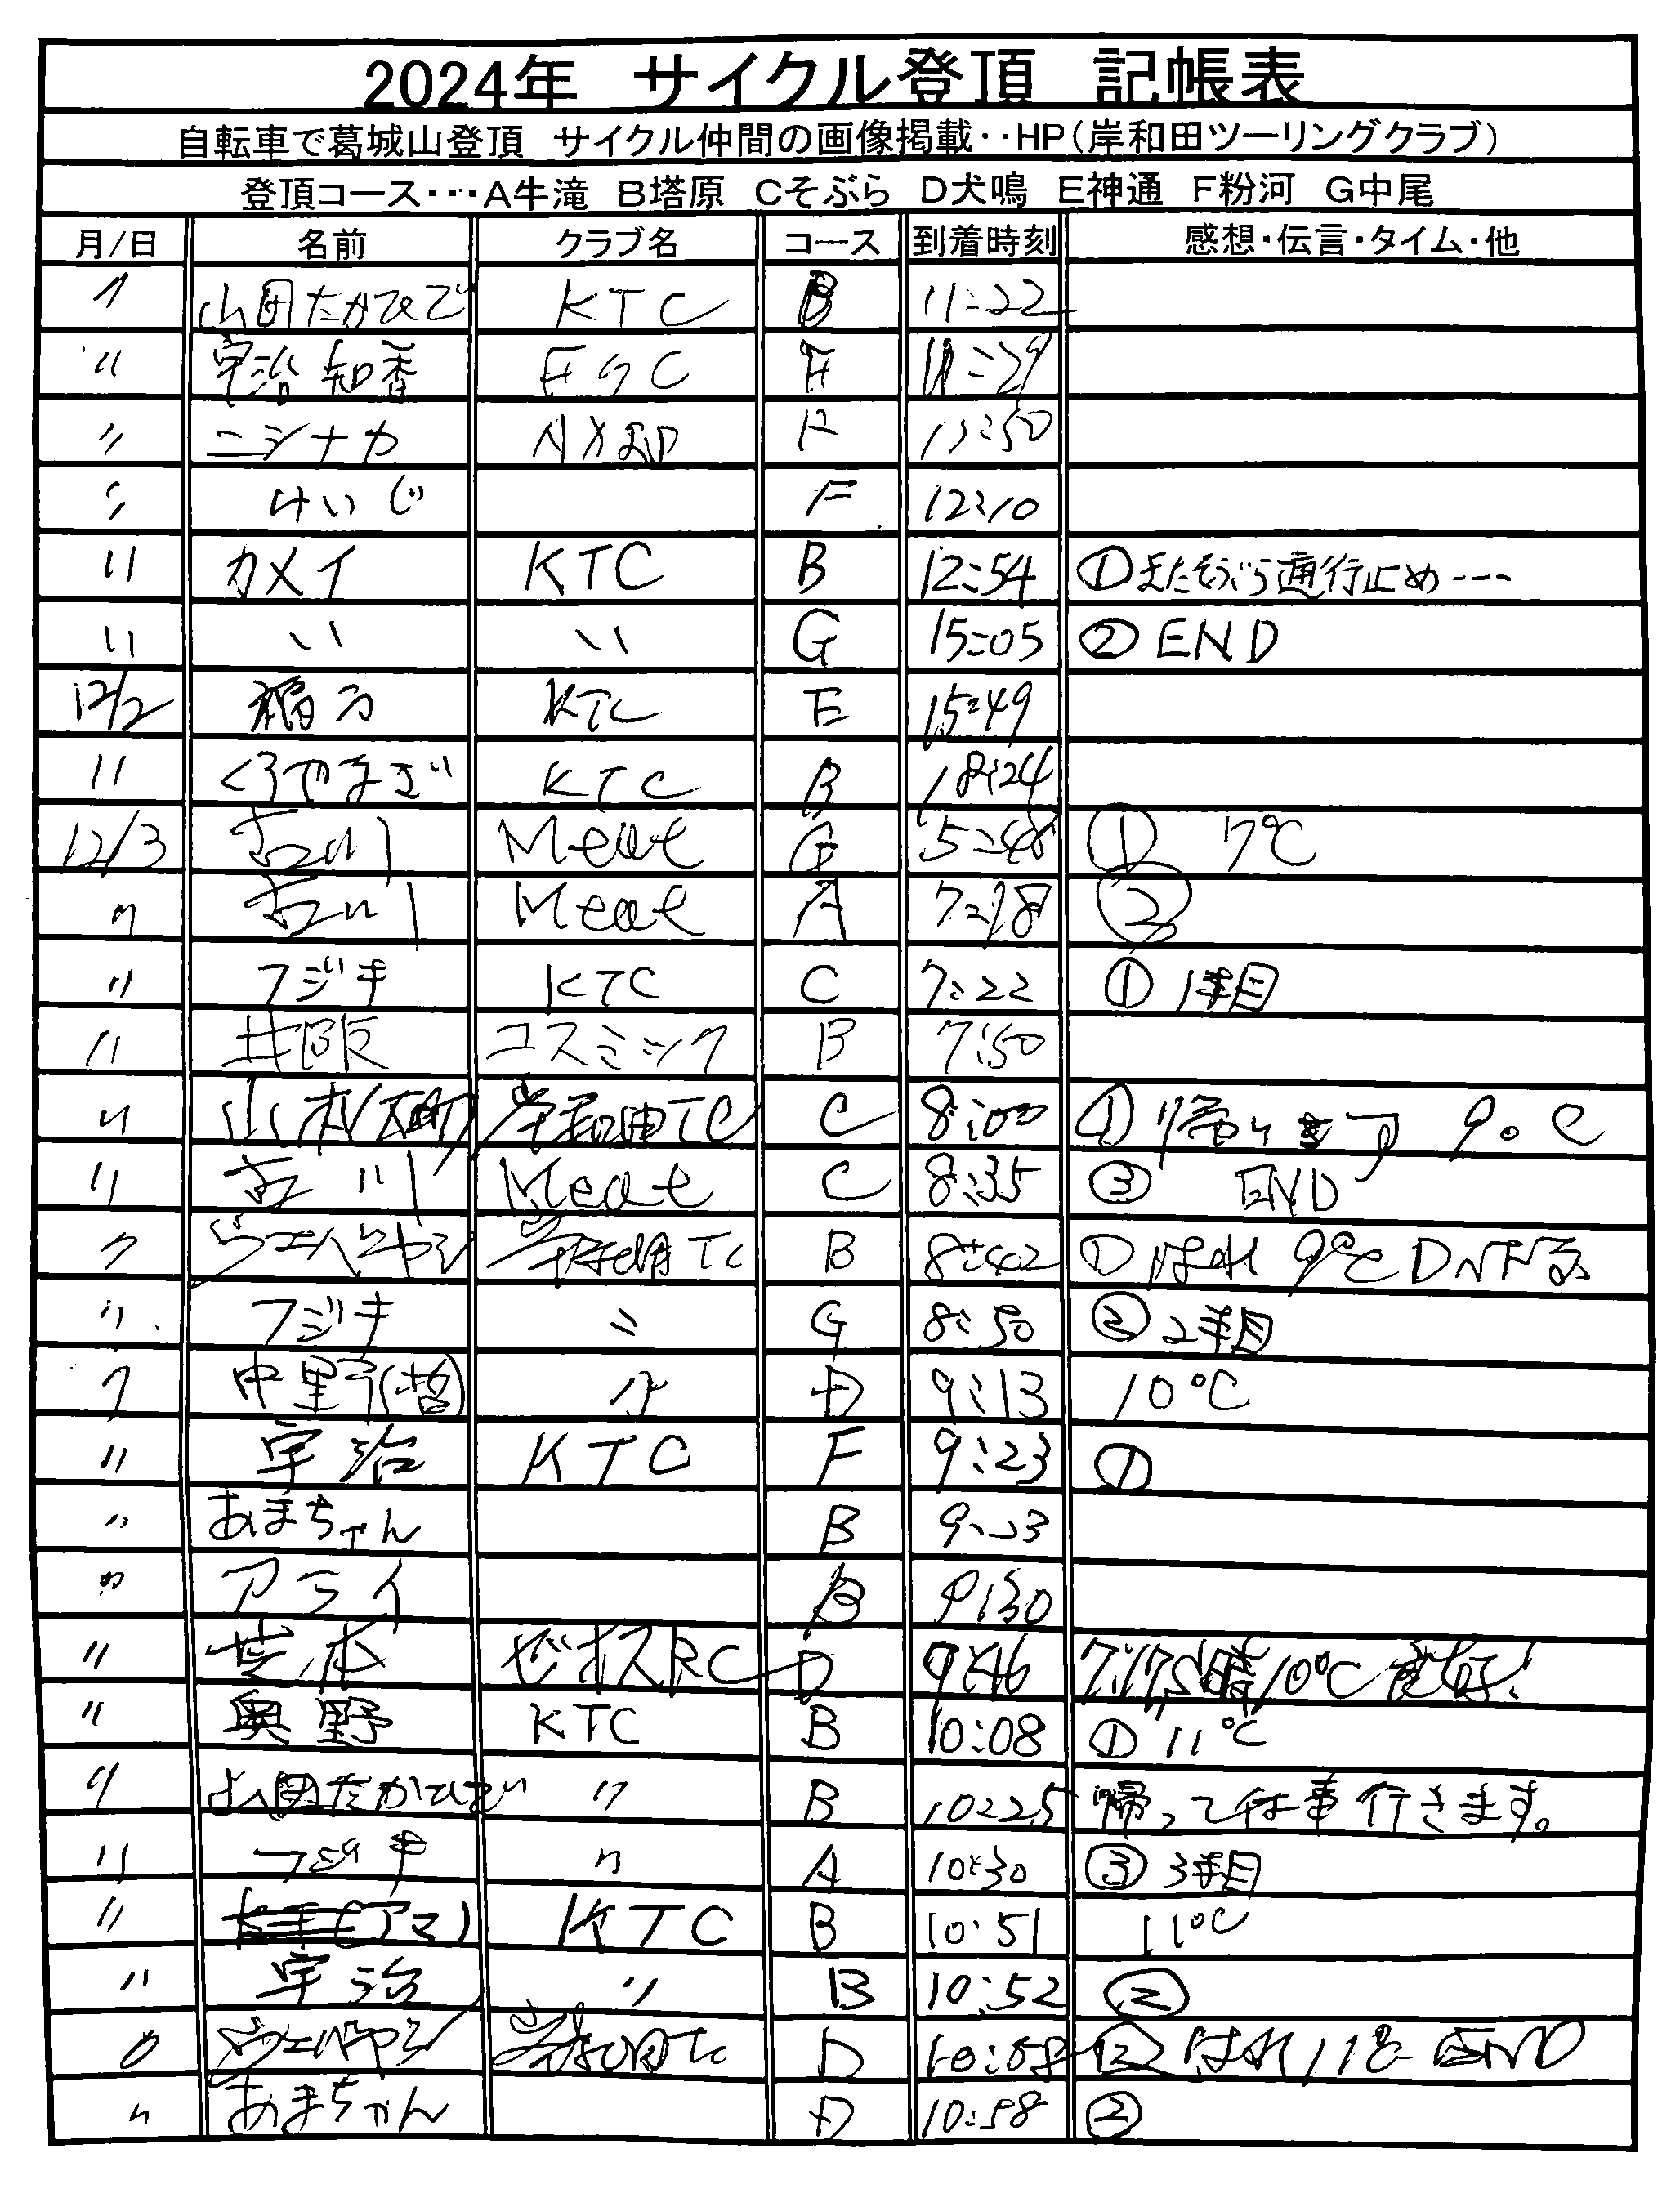 2024年 サイクル登頂 記帳表
自転車で葛城山登頂 サイクル仲間の画像掲載‥HP(岸和田ツーリングクラブ)
登頂コース･･･A牛滝 B塔原 Cそぶら D犬鳴 E神通 F粉河 G中尾
月/日 名前 クラブ名 コース 到着時刻 感想・伝言・タイム・他
〃 山田たかひで KTC B 11:22
〃 宇治 知香 F 11:29
〃 ニシナカ F 11:50
〃 けいじ F 12:10
〃 カメイ KTC B 12:54 ①またそぶら通行止め---
〃 〃 〃 G 15:05 ②END
12/2 稲方 KTC E 15:49
〃 くろやまざ KTC B 18:24
12/3 古川 Meat G 5:48 ① 7℃
〃 古川 Meat A 7:18 ②
〃 フジキ KTC C 7:22 ① 1本目
〃 井阪 コスミック B 7:50
〃 山本 岸和田TC C 8:00 ① 帰ります 9℃
〃 古川 Meat C 8:35 ③ END
〃 岸和田TC B 8:42 ① はれ 9℃ D
〃 フジキ 〃 G 8:50 ② 2本目
〃 中野(哲) 〃 D 9:13 10℃
〃 宇治 KTC F 9:23 ①
〃 あまちゃん B 9:23
〃 アライ B 9:30
〃 芝本 ビオスRC D 9:46 10℃
〃 奥野 KTC B 10:08 ① 11℃
〃 山田たかひで 〃 B 10:25 帰って仕事行きます。
〃 フジキ 〃 A 10:30 ③ 3本目
〃 (アマ) KTC B 10:51 11℃
〃 宇治 〃 B 10:52 ②
〃 岸和田TC D 10:58 ② はれ 11℃ END
〃 あまちゃん D 10:58 ②